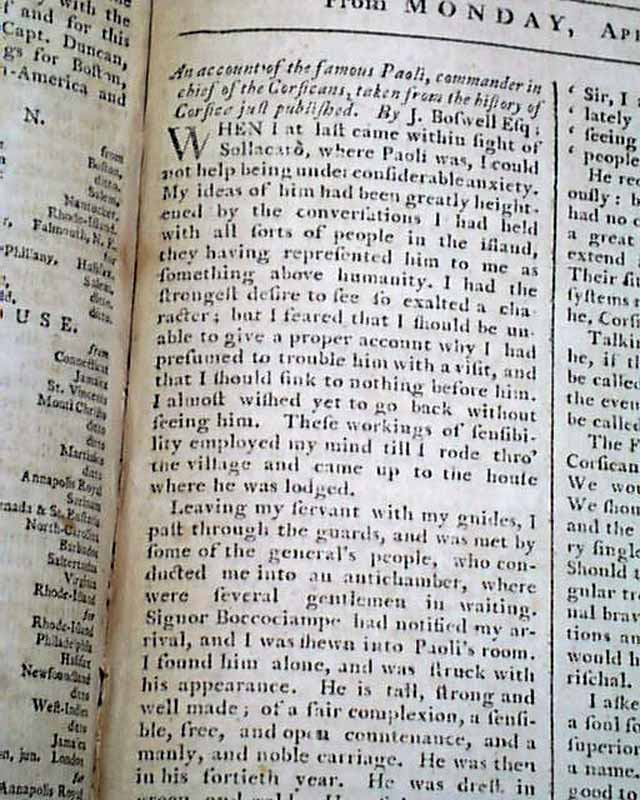 with the
f and for this
Capt. Duncan,
gs for Boston,
h-America and
N.
from
Boston,
ditto.
Salem,
Nantucket,
Rhode-Island.
Falmouth, N. E.
for
Halifax,
Salem,
ditto,
ditto.
U S E.
from
Connecticut
Jamaica
St. Vincents
Monti Christo
ditto
ditto
Martinico
ditto
Annapolis Royal
Surinam
nada & St. Eustatia
North-Carolina
Barbados
Salterudas
Virginia
Rhode-Island
for
Rhode-Island
Philadelphia
Halifax
Newfoundland
ditto
West-Indies
ditto
Jamaica
en, jun. London
for
Annapolis Royal
From MONDAY, Apr
An account of the famous Paoli, commander in
chief of the Corsicans, taken from the history of
Corsica just published. By J. Boswell Esq;
WHEN I at last came within sight of
Sollacarò, where Paoli was, I could
not help being under considerable anxiety.
My ideas of him had been greatly height-
ened by the conversations I had held
with all sorts of people in the island,
they having represented him to me as
something above humanity. I had the
strongest desire to see so exalted a cha-
racter; but I feared that I should be un-
able to give a proper account why I had
presumed to trouble him with a visit, and
that I should sink to nothing before him.
I almost wished yet to go back without
seeing him. These workings of sensibi-
lity employed my mind till I rode thro'
the village and came up to the house
where he was lodged.
Leaving my servant with my guides, I
past through the guards, and was met by
some of the general's people, who con-
ducted me into an antichamber, where
were several gentlemen in waiting.
Signor Boccociampe had notified my ar-
rival, and I was shewn into Paoli's room.
I found him alone, and was struck with
his appearance. He is tall, strong and
well made; of a fair complexion, a sensi-
ble, free, and open countenance, and a
manly, and noble carriage. He was then
in his fortieth year. He was drest in
green and gold.
‘ Sir, I
‘ lately
‘ seeing
‘ people
He rec
ously: b
had no c
a great
extend
Their si
systems
he, Corsi
Talkin
he, if th
be called
the even
be called
The F
Corsican
We wou
We shou
and the
ry single
Should t
gular tr
nal brav
tions an
would h
rischal.
I aske
a soul so
superior
a name.
good to